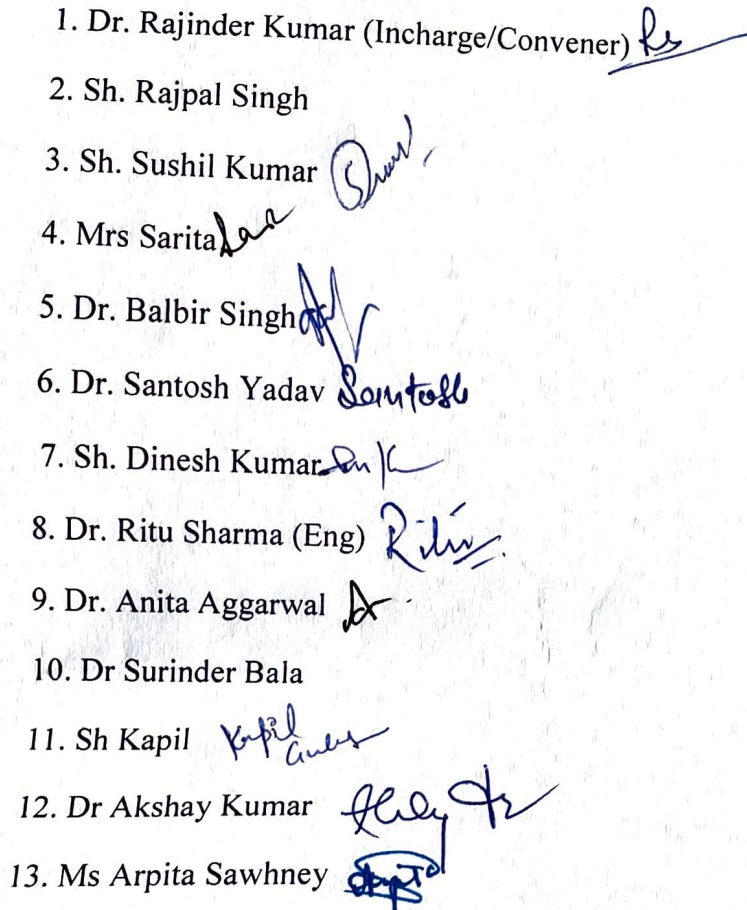 1. Dr. Rajinder Kumar (Incharge/Convener)
2. Sh. Rajpal Singh
3. Sh. Sushil Kumar
4. Mrs Sarita
5. Dr. Balbir Singh
6. Dr. Santosh Yadav Santosh
7. Sh. Dinesh Kumar
8. Dr. Ritu Sharma (Eng) Ritu
9. Dr. Anita Aggarwal
10. Dr Surinder Bala
11. Sh Kapil Kapil
12. Dr Akshay Kumar
13. Ms Arpita Sawhney